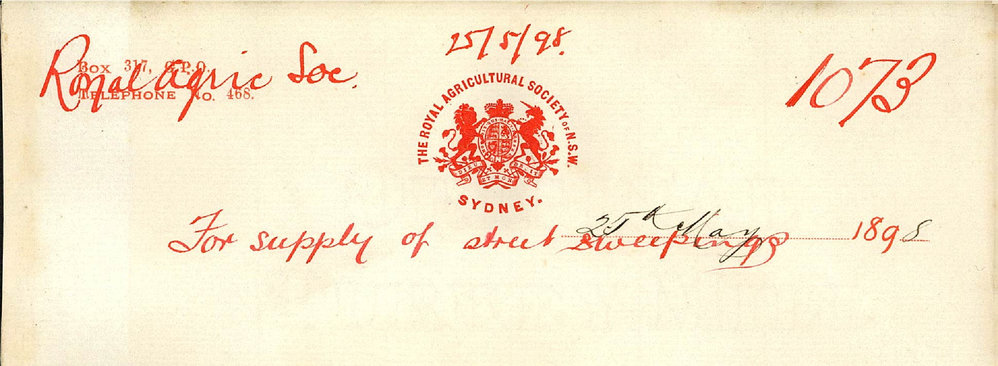 25/5/98.
Royal Agric Soc.
Box 317, G.P.O.
Telephone No. 468.
1073
THE ROYAL AGRICULTURAL SOCIETY OF N.S.W.
SYDNEY.
For supply of street sweepings
25th May 1898